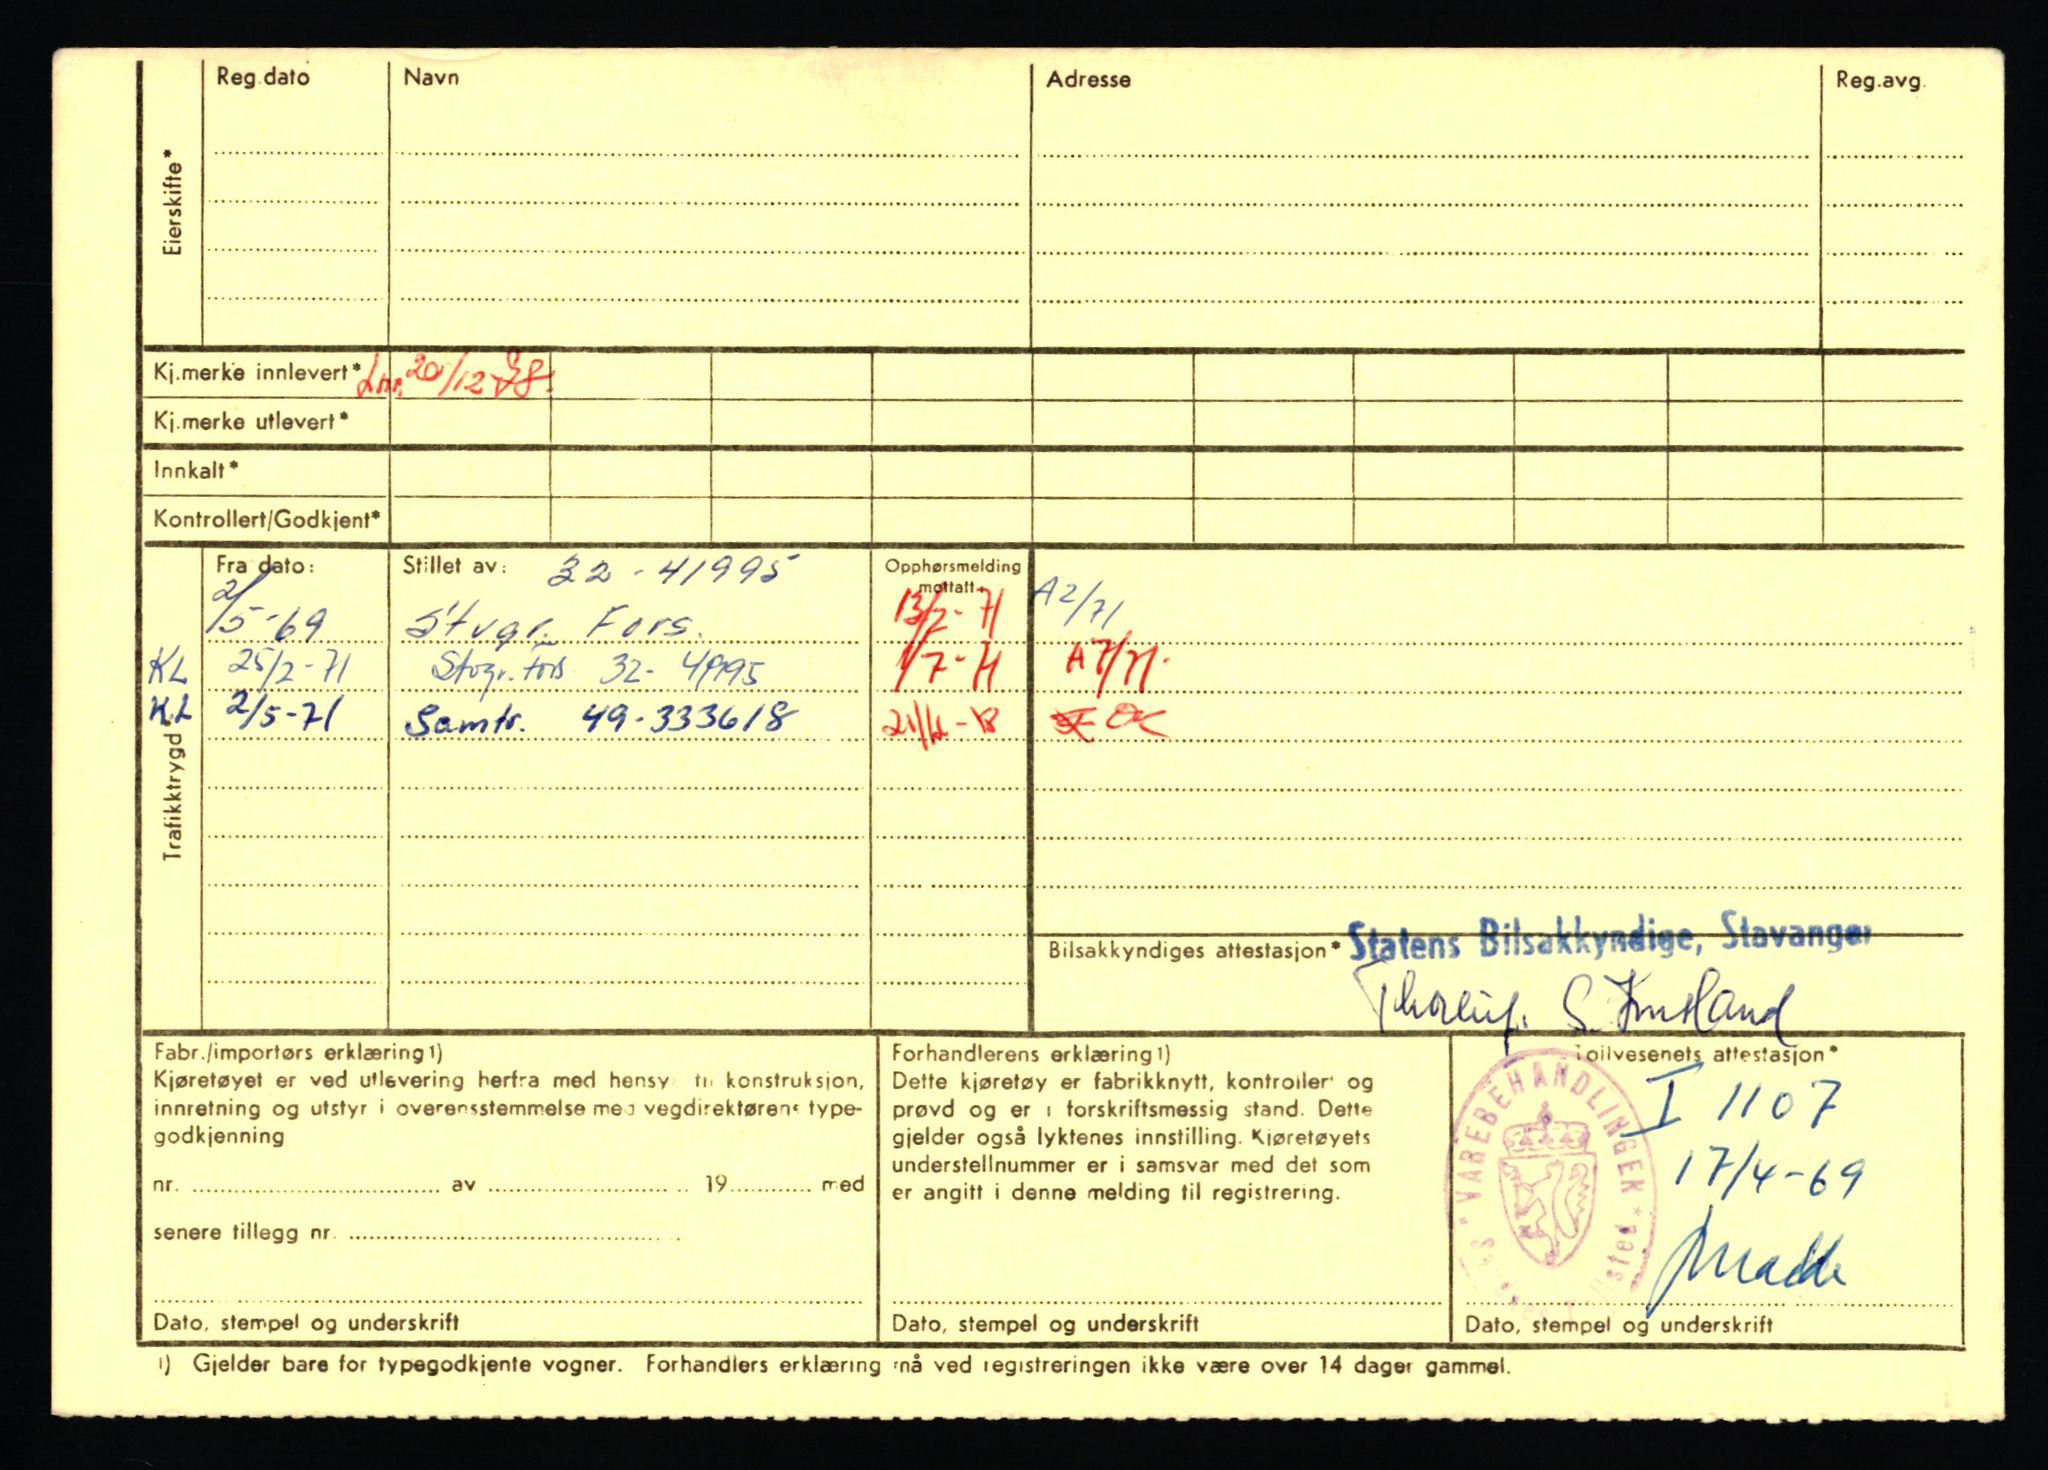 Reg.dato Navn Adresse Reg.avg.
Eierskifte*
Kj.merke innlevert* Lnr. 20/12-78.
Kj.merke utlevert*
Innkalt*
Kontrollert/Godkjent*
Trafikktrygd
Fra dato: Stillet av: 32-41995 Opphørsmelding mottatt
2/5-69 Stvgr. Fors. 13/2-71 A2/71
KL 25/2-71 Stvgr. fors 32-41995 1/7-71 A7/71.
KL 2/5-71 Samtr. 49-333618 21/12-78 OK
Bilsakkyndiges attestasjon* Statens Bilsakkyndige, Stavanger
Fabr./importørs erklæring1)
Kjøretøyet er ved utlevering herfra med hensyn til konstruksjon,
innretning og utstyr i overensstemmelse med vegdirektørens type-
godkjenning
nr. av 19 med
senere tillegg nr.
Dato, stempel og underskrift
Forhandlerens erklæring1)
Dette kjøretøy er fabrikknytt, kontrollert og
prøvd og er i forskriftsmessig stand. Dette
gjelder også lyktenes innstilling. Kjøretøyets
understellnummer er i samsvar med det som
er angitt i denne melding til registrering.
Dato, stempel og underskrift
Tollvesenets attestasjon*
VAREBEHANDLINGEN
I 1107
17/4-69
Dato, stempel og underskrift
1) Gjelder bare for typegodkjente vogner. Forhandlers erklæring må ved registreringen ikke være over 14 dager gammel.